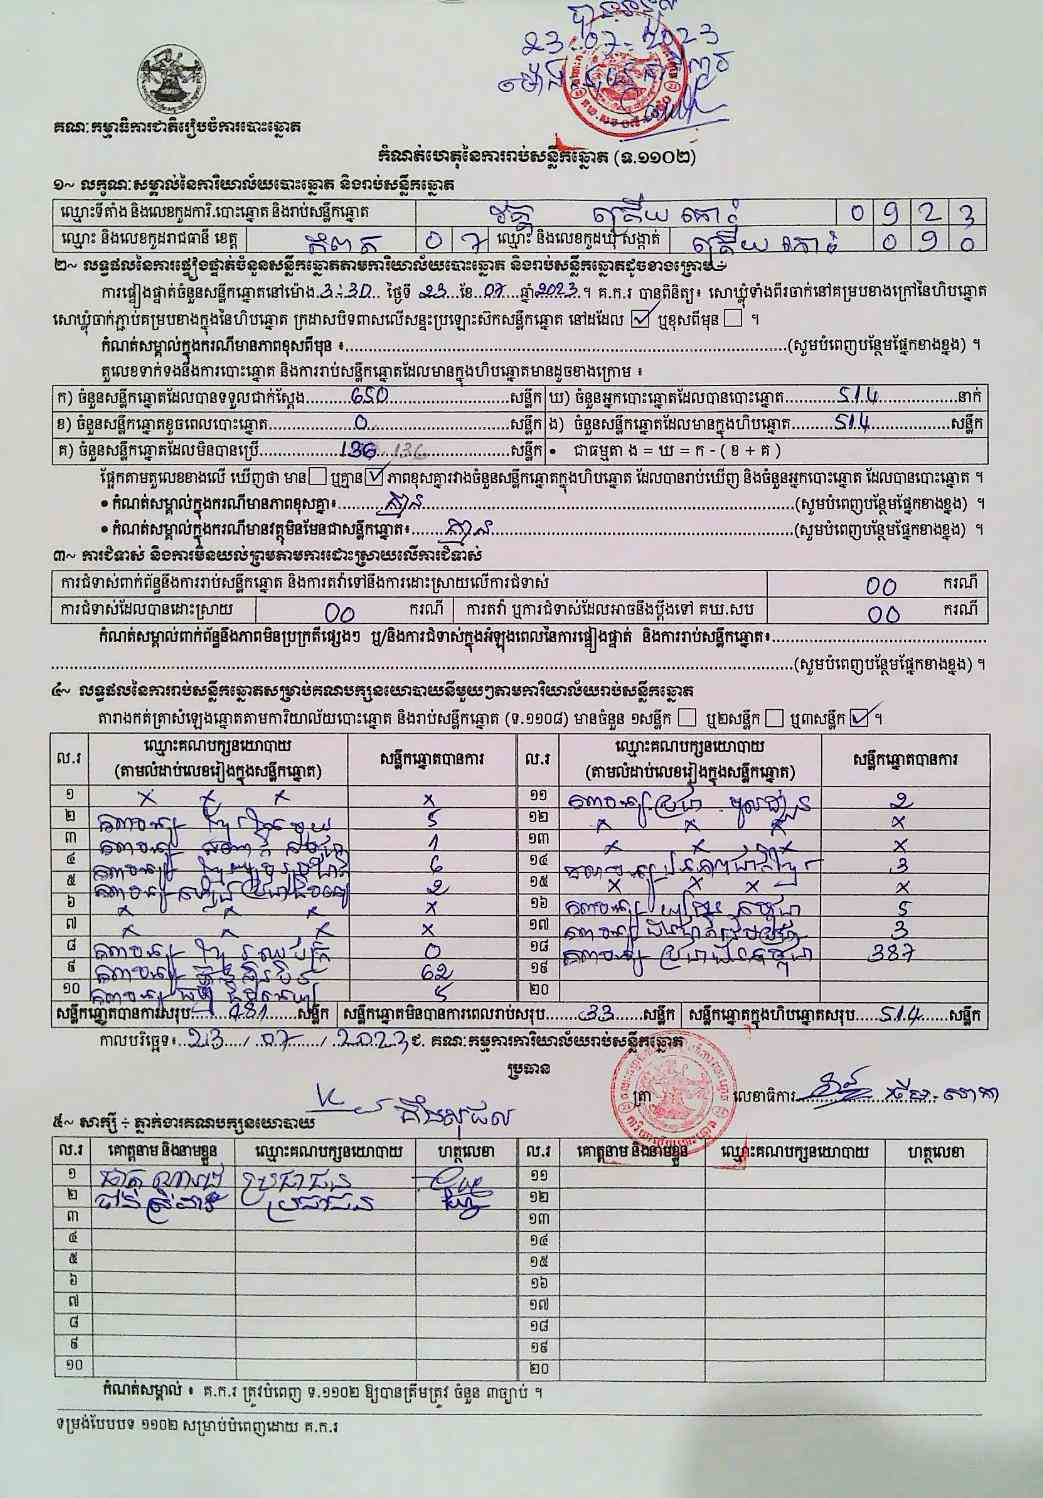 បានទទួល
23-07-2023
ម៉ោង
គណៈកម្មាធិការជាតិរៀបចំការបោះឆ្នោត
កំណត់ហេតុនៃការរាប់សន្លឹកឆ្នោត (ទ.១១០២)
១~ លក្ខណៈសម្គាល់នៃការិយាល័យបោះឆ្នោត និងរាប់សន្លឹកឆ្នោត
ឈ្មោះទីតាំង និងលេខកូដការិ.បោះឆ្នោត និងរាប់សន្លឹកឆ្នោត វត្ត ត្រើយកោះ 0 9 2 3
ឈ្មោះ និងលេខកូដរាជធានី ខេត្ត កំពត 0 7 ឈ្មោះ និងលេខកូដឃុំ សង្កាត់ ត្រើយកោះ 0 9 0
២~ លទ្ធផលនៃការផ្ទៀងផ្ទាត់ចំនួនសន្លឹកឆ្នោតតាមការិយាល័យបោះឆ្នោត និងរាប់សន្លឹកឆ្នោតដូចខាងក្រោម÷
ការផ្ទៀងផ្ទាត់ចំនួនសន្លឹកឆ្នោតនៅម៉ោង 3:30 ថ្ងៃទី 23 ខែ 07 ឆ្នាំ 2023 ។ គ.ក.រ បានពិនិត្យ៖ សោឃ្លុំទាំងពីរចាក់នៅគម្របខាងក្រៅនៃហិបឆ្នោត
សោឃ្លុំចាក់ភ្ជាប់គម្របខាងក្នុងនៃហិបឆ្នោត ក្រដាសបិទពាសលើសន្ទះប្រឡោះស៊កសន្លឹកឆ្នោត នៅដដែល ☑ ឬខុសពីមុន ☐ ។
កំណត់សម្គាល់ក្នុងករណីមានភាពខុសពីមុន ៖ (សូមបំពេញបន្ថែមផ្នែកខាងខ្នង) ។
តួលេខទាក់ទងនឹងការបោះឆ្នោត និងការរាប់សន្លឹកឆ្នោតដែលមានក្នុងហិបឆ្នោតមានដូចខាងក្រោម ៖
ក) ចំនួនសន្លឹកឆ្នោតដែលបានទទួលជាក់ស្តែង 650 សន្លឹក ឃ) ចំនួនអ្នកបោះឆ្នោតដែលបានបោះឆ្នោត 514 នាក់
ខ) ចំនួនសន្លឹកឆ្នោតខូចពេលបោះឆ្នោត 0 សន្លឹក ង) ចំនួនសន្លឹកឆ្នោតដែលមានក្នុងហិបឆ្នោត 514 សន្លឹក
គ) ចំនួនសន្លឹកឆ្នោតដែលមិនបានប្រើ 136 136 សន្លឹក • ជាធម្មតា ង = ឃ = ក - ( ខ + គ )
ផ្អែកតាមតួលេខខាងលើ ឃើញថា មាន ☐ ឬគ្មាន ☑ ភាពខុសគ្នារវាងចំនួនសន្លឹកឆ្នោតក្នុងហិបឆ្នោត ដែលបានរាប់ឃើញ និងចំនួនអ្នកបោះឆ្នោត ដែលបានបោះឆ្នោត ។
• កំណត់សម្គាល់ក្នុងករណីមានភាពខុសគ្នា៖ គ្មាន (សូមបំពេញបន្ថែមផ្នែកខាងខ្នង) ។
• កំណត់សម្គាល់ក្នុងករណីមានវត្ថុមិនមែនជាសន្លឹកឆ្នោត៖ គ្មាន (សូមបំពេញបន្ថែមផ្នែកខាងខ្នង) ។
៣~ ការជំទាស់ និងការមិនយល់ព្រមតាមការដោះស្រាយលើការជំទាស់
ការជំទាស់ពាក់ព័ន្ធនឹងការរាប់សន្លឹកឆ្នោត និងការតវ៉ាទៅនឹងការដោះស្រាយលើការជំទាស់ 00 ករណី
ការជំទាស់ដែលបានដោះស្រាយ 00 ករណី ការតវ៉ា ឬការជំទាស់ដែលអាចនឹងប្តឹងទៅ គឃ.សប 00 ករណី
កំណត់សម្គាល់ពាក់ព័ន្ធនឹងភាពមិនប្រក្រតីផ្សេងៗ ឬ/និងការជំទាស់ក្នុងអំឡុងពេលនៃការផ្ទៀងផ្ទាត់ និងការរាប់សន្លឹកឆ្នោត៖
(សូមបំពេញបន្ថែមផ្នែកខាងខ្នង) ។
៤~ លទ្ធផលនៃការរាប់សន្លឹកឆ្នោតសម្រាប់គណបក្សនយោបាយនីមួយៗតាមការិយាល័យរាប់សន្លឹកឆ្នោត
តារាងកត់ត្រាសំឡេងឆ្នោតតាមការិយាល័យបោះឆ្នោត និងរាប់សន្លឹកឆ្នោត (ទ.១១០៨) មានចំនួន ១សន្លឹក ☐ ឬ២សន្លឹក ☐ ឬ៣សន្លឹក ☑ ។
ល.រ ឈ្មោះគណបក្សនយោបាយ (តាមលំដាប់លេខរៀងក្នុងសន្លឹកឆ្នោត) សន្លឹកឆ្នោតបានការ ល.រ ឈ្មោះគណបក្សនយោបាយ (តាមលំដាប់លេខរៀងក្នុងសន្លឹកឆ្នោត) សន្លឹកឆ្នោតបានការ
១ x x x x ១១ គណបក្ស 2
២ គណបក្ស 5 ១២ x x x x
៣ គណបក្ស 1 ១៣ x x x x
៤ គណបក្ស 6 ១៤ គណបក្ស 3
៥ គណបក្ស 2 ១៥ x x x x
៦ x x x x ១៦ គណបក្ស 5
៧ x x x x ១៧ គណបក្ស 3
៨ គណបក្ស 0 ១៨ គណបក្ស ប្រជាជនកម្ពុជា 387
៩ គណបក្ស ហ៊្វុនស៊ិនប៉ិច 62 ១៩
១០ គណបក្ស 5 ២០
សន្លឹកឆ្នោតបានការសរុប 481 សន្លឹក សន្លឹកឆ្នោតមិនបានការពេលរាប់សរុប 33 សន្លឹក សន្លឹកឆ្នោតក្នុងហិបឆ្នោតសរុប 514 សន្លឹក
កាលបរិច្ឆេទ៖ 23 / 07 / 2023 ជ. គណៈកម្មការការិយាល័យរាប់សន្លឹកឆ្នោត
ប្រធាន
ត្រា លេខាធិការ
៥~ សាក្សី ÷ ភ្នាក់ងារគណបក្សនយោបាយ
ល.រ គោត្តនាម និងនាមខ្លួន ឈ្មោះគណបក្សនយោបាយ ហត្ថលេខា ល.រ គោត្តនាម និងនាមខ្លួន ឈ្មោះគណបក្សនយោបាយ ហត្ថលេខា
១ ប្រជាជន ១១
២ ប្រជាជន ១២
៣ ១៣
៤ ១៤
៥ ១៥
៦ ១៦
៧ ១៧
៨ ១៨
៩ ១៩
១០ ២០
កំណត់សម្គាល់ ៖ គ.ក.រ ត្រូវបំពេញ ទ.១១០២ ឱ្យបានត្រឹមត្រូវ ចំនួន ៣ច្បាប់ ។
ទម្រង់បែបបទ ១១០២ សម្រាប់បំពេញដោយ គ.ក.រ